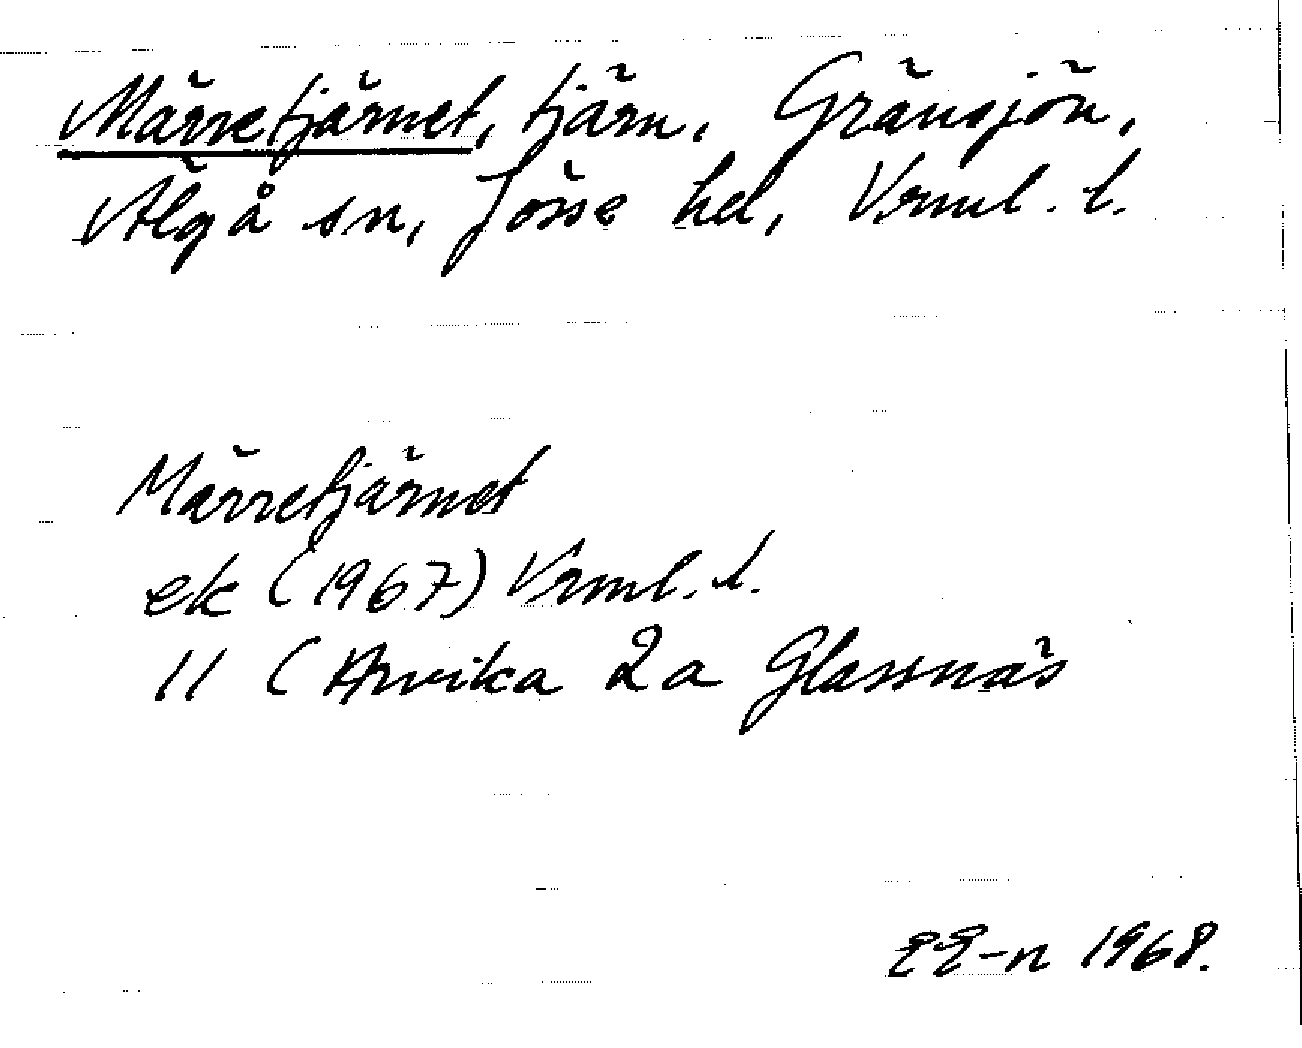 Märretjärnet, tjärn, Gränsjön,
Älgå sn, Jösse hd, Vrml. l.
Märretjärnet
ek (1967) Vrml. l.
11 (Arvika 2a Glassnäs
EE-n 1968.